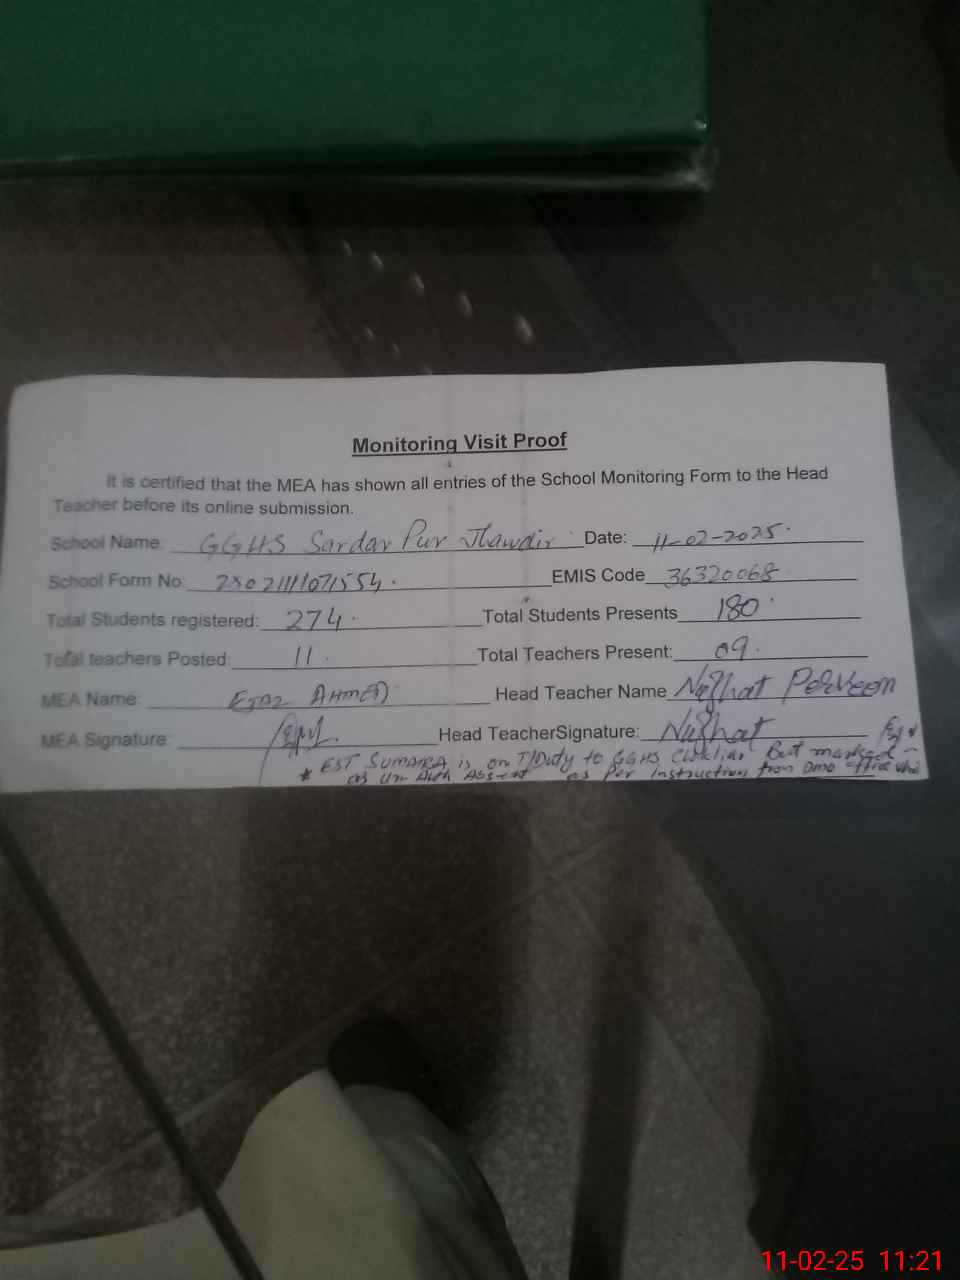 Monitoring Visit Proof
It is certified that the MEA has shown all entries of the School Monitoring Form to the Head
Teacher before its online submission.
School Name: GGHS Sardar Pur Jhandir Date: 11-02-2025.
School Form No: EMIS Code 36320068
Total Students registered: 274. Total Students Presents 180.
Total teachers Posted: 11. Total Teachers Present: 09.
MEA Name: Ejaz AHMED Head Teacher Name Nuzhat Perveen
MEA Signature: Head TeacherSignature: Nuzhat
* EST SUMAIRA is on T/Duty to GGHS But marked
as Un Auth Absent as Per Instruction from DMO office
11-02-25 11:21